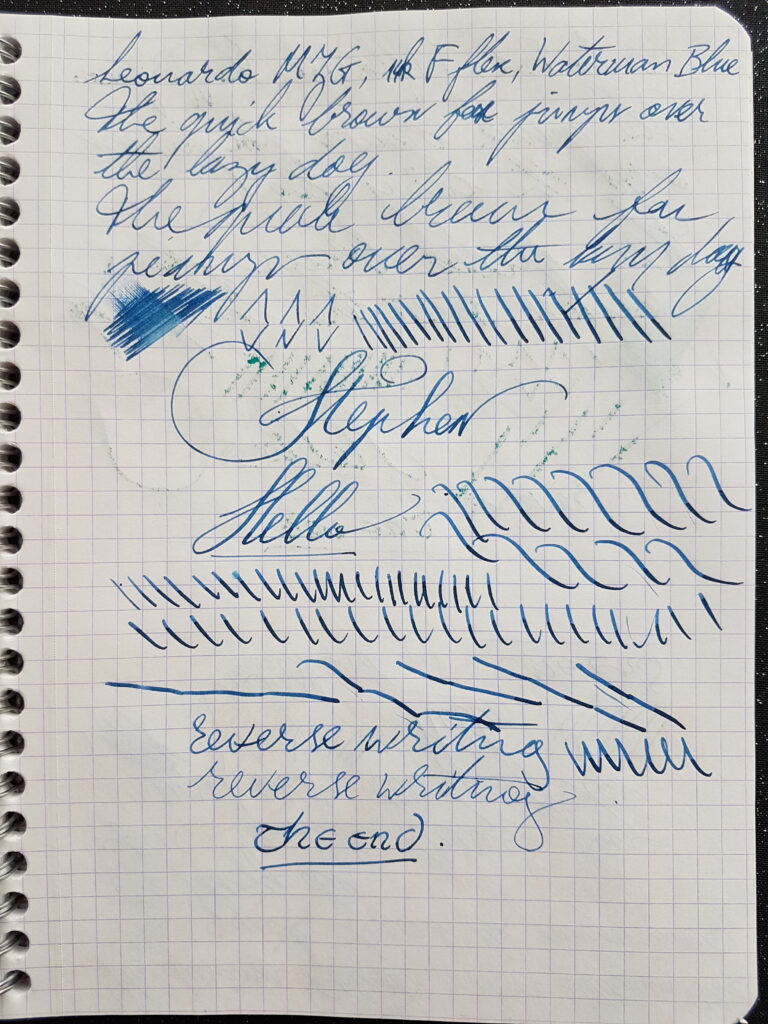 Leonardo MZG, 14k F flex, Waterman Blue
The quick brown fox jumps over
the lazy dog.
The quick brown fox
jumps over the lazy dog
Stephen
Hello
reverse writing
reverse writing
The end.